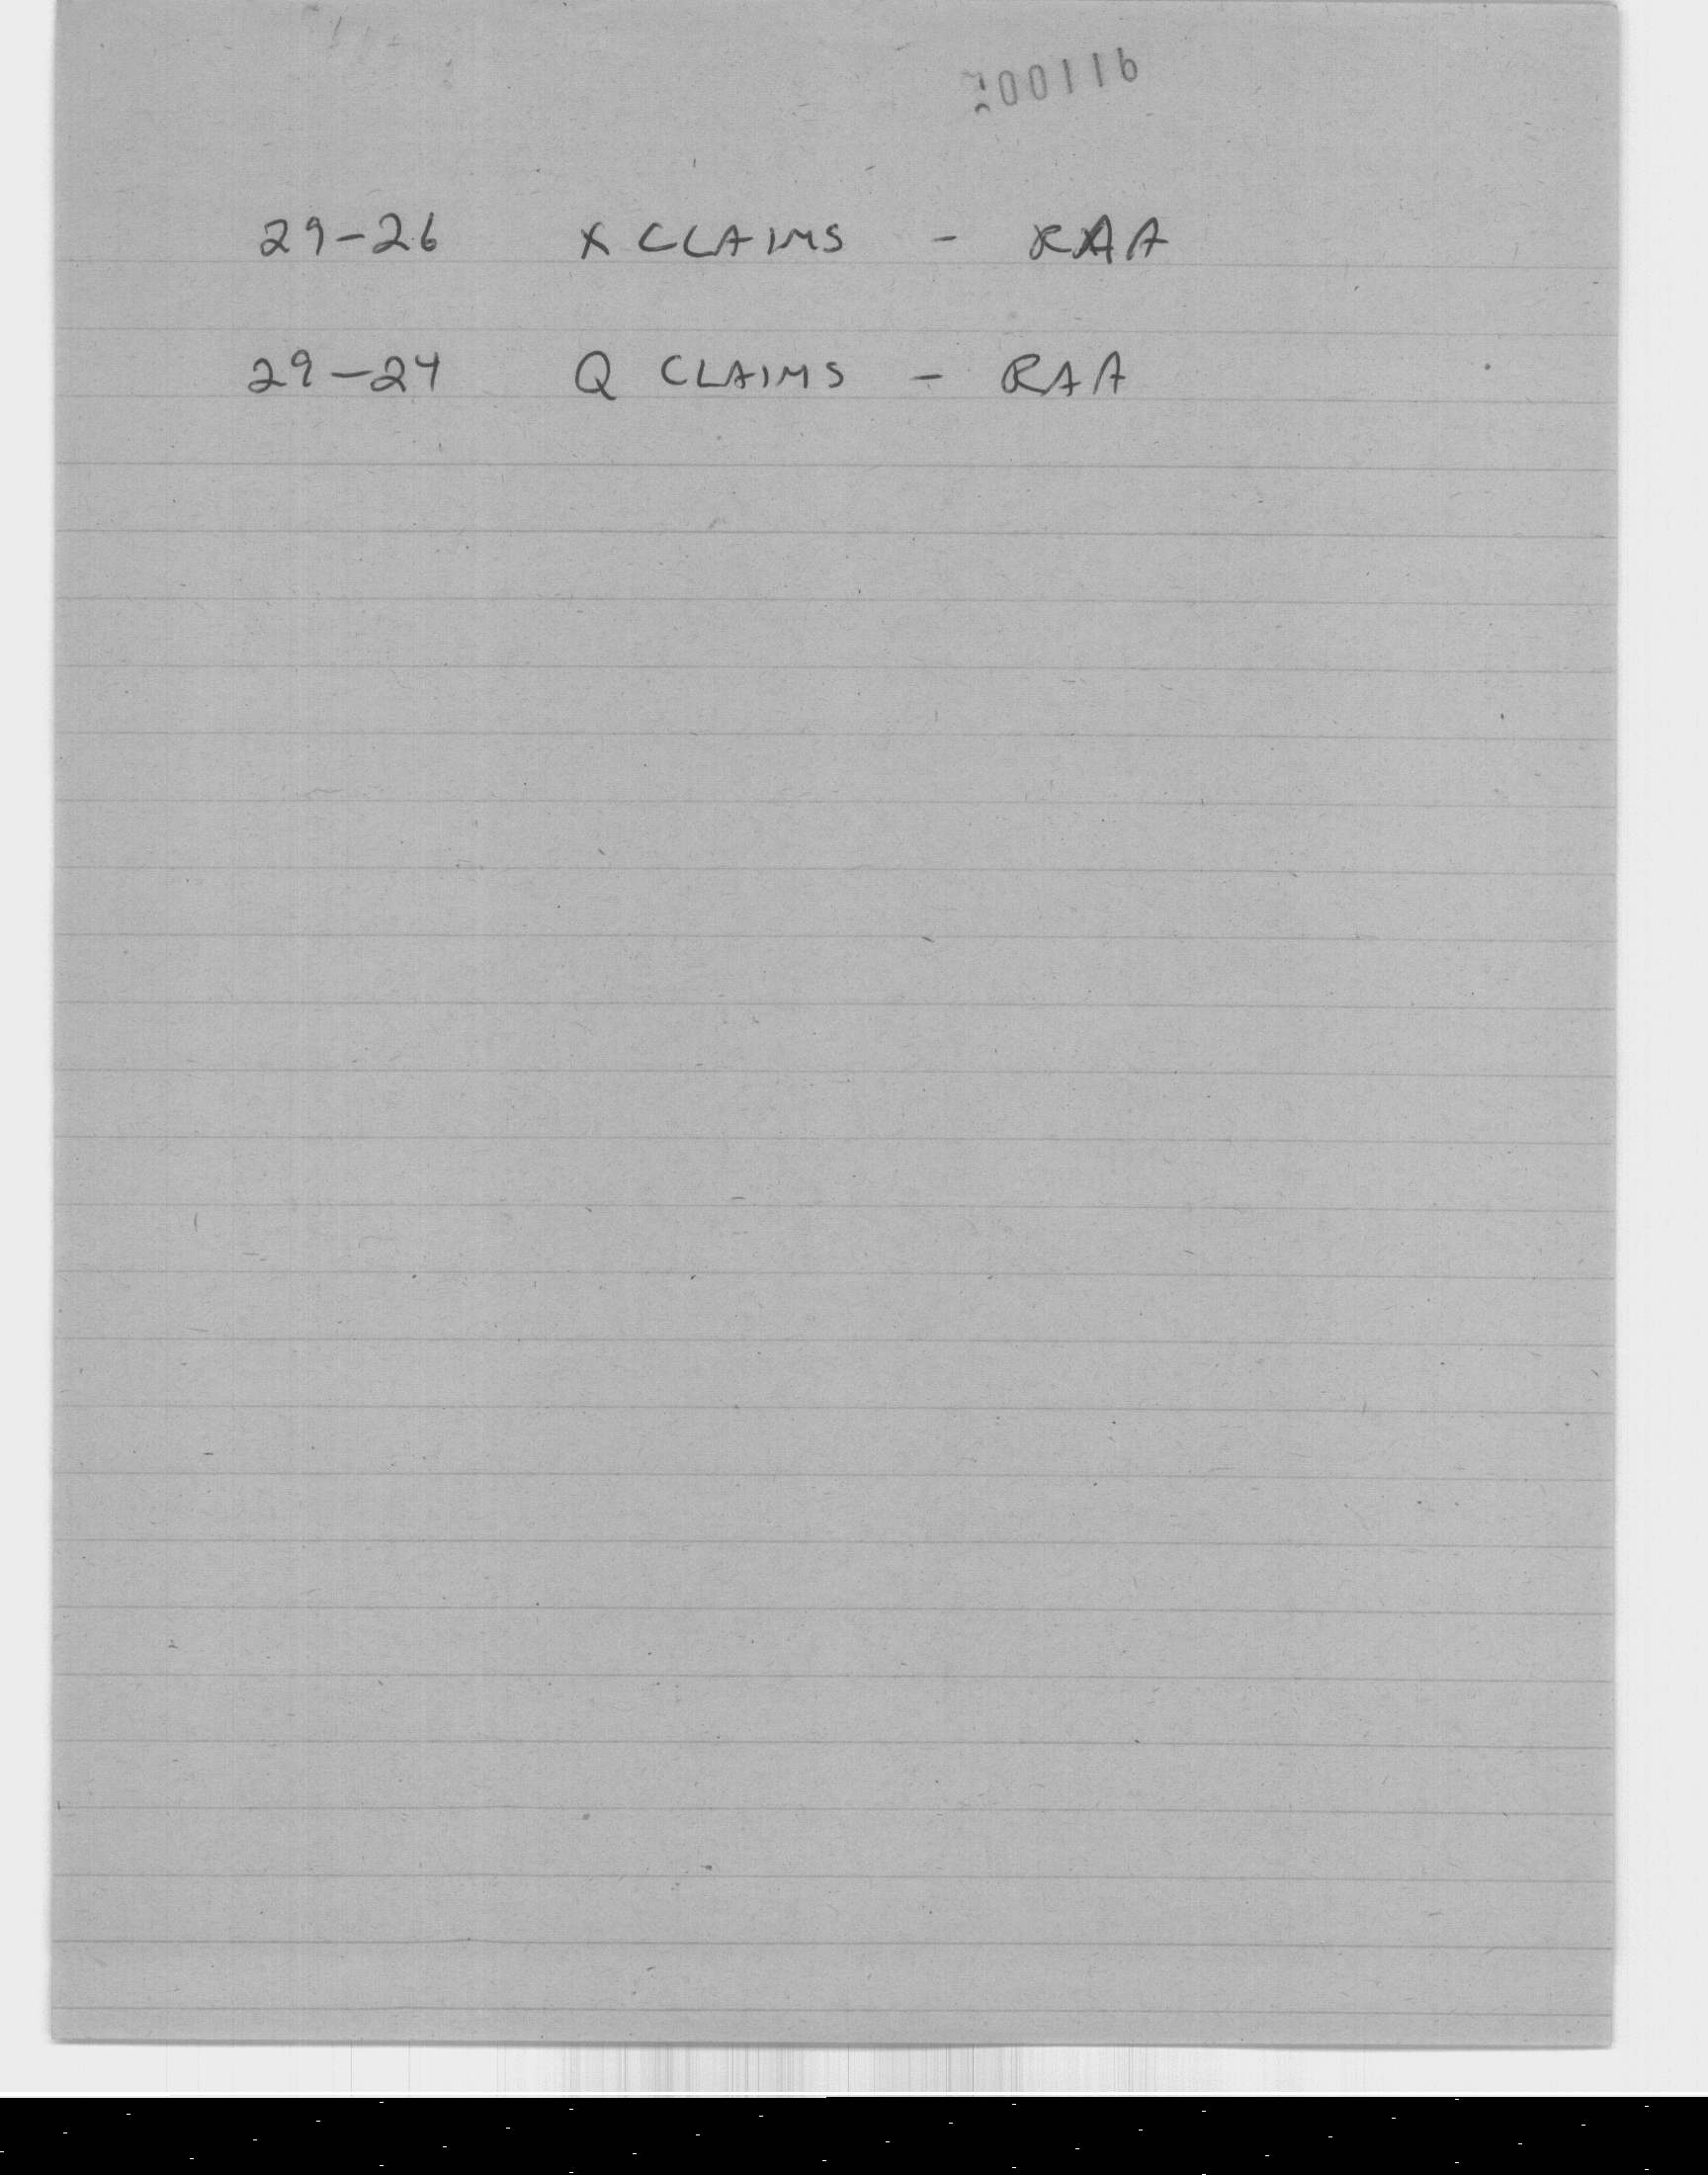 29-26 X CLAIMS - RAA
29-24 Q CLAIMS - RAA